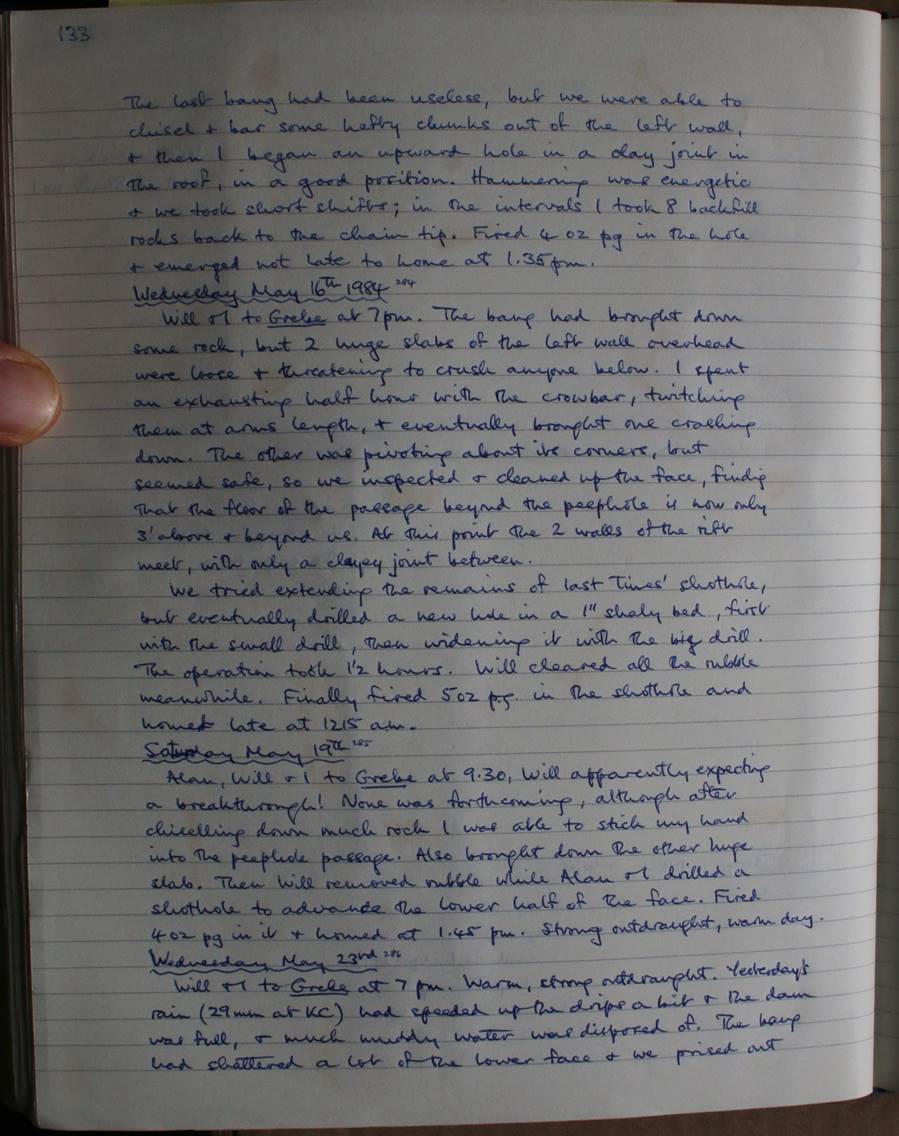 133
The last bang had been useless, but we were able to
chisel + bar some hefty chunks out of the left wall,
+ then I began an upward hole in a clay joint in
the roof, in a good position. Hammering was energetic
+ we took short shifts; in the intervals I took 8 backfill
rocks back to the chain tip. Fired 4 oz pg in the hole
+ emerged not late to home at 1.35pm.
Wednesday May 16th 1984 284
Will + I to Grebe at 7pm. The bang had brought down
some rock, but 2 huge slabs of the left wall overhead
were loose + threatening to crush anyone below. I spent
an exhausting half hour with the crowbar, twitching
them at arms length, + eventually brought one crashing
down. The other was pivoting about its corners, but
seemed safe, so we inspected + cleaned up the face, finding
that the floor of the passage beyond the peephole is now only
3' above + beyond us. At this point the 2 walls of the rift
meet, with only a clayey joint between.
We tried extending the remains of last Tues' shothole,
but eventually drilled a new hole in a 1" shaly bed, first
with the small drill, then widening it with the big drill.
The operation took 1½ hours. Will cleared all the rubble
meanwhile. Finally fired 5oz p.g. in the shothole and
homed late at 1215 am.
Saturday May 19th 285
Alan, Will + I to Grebe at 9.30, Will apparently expecting
a breakthrough! None was forthcoming, although after
chiselling down much rock I was able to stick my hand
into the peephole passage. Also brought down the other huge
slab. Then Will removed rubble while Alan + I drilled a
shothole to advance the lower half of the face. Fired
4oz pg in it + homed at 1.45 pm. Strong outdraught, warm day.
Wednesday May 23rd 286
Will + I to Grebe at 7 pm. Warm, strong outdraught. Yesterday's
rain (29mm at KC) had speeded up the drips a bit + the dam
was full, + much muddy water was disposed of. The bang
had shattered a lot of the lower face + we prised out